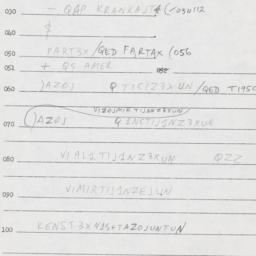 030 — QAP KRANKAJT& (/030112
040 $
050 PART3X/QED FARTAX (056
051 + QS AMER
060 )AZOJ Q TICIZ3X UN/QED T195C
VIZOJMIRTIJ1NZ3XUN
070 )AZOJ Q INCTIJ1NZ3XUN
080 VIAL1TIJ1NZ3XUN QZZ
090 VIMIRTIJ1NZEJUN
100 KENST3XN1S+TAZOJUNTUN